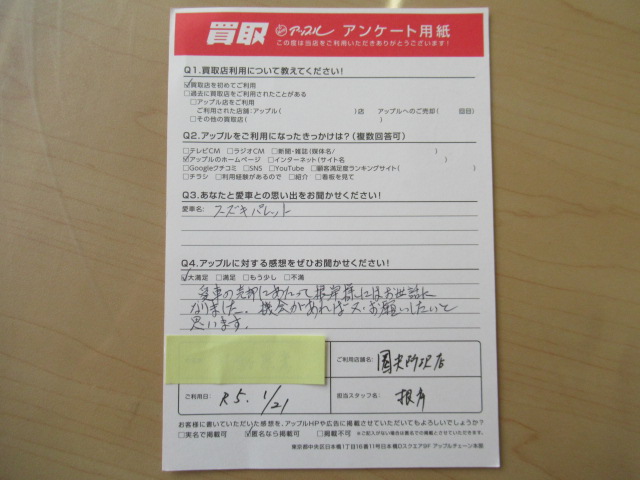 買取 アップル アンケート用紙
この度は当店をご利用いただきありがとうございます!
Q1.買取店利用について教えてください!
☑買取店を初めてご利用
□過去に買取店をご利用されたことがある
□アップル店をご利用
ご利用された店舗:アップル( )店 アップルへのご売却( 回目)
□その他の買取店( )
Q2.アップルをご利用になったきっかけは?(複数回答可)
□テレビCM □ラジオCM □新聞・雑誌(媒体名/ )
☑アップルのホームページ □インターネット(サイト名 )
□Googleクチコミ □SNS □YouTube □顧客満足度ランキングサイト( )
□チラシ □利用経験があるので □紹介 □看板を見て
Q3.あなたと愛車との思い出をお聞かせください!
愛車名: スズキパレット
Q4.アップルに対する感想をぜひお聞かせください!
☑大満足 □満足 □もう少し □不満
愛車の売却にあたって根岸様にはお世話に
なりました。機会があればまたお願いしたいと
思います。
ご利用店舗名: 国道所沢店
ご利用日: R5. 1/21 担当スタッフ名: 根岸
お客様に書いていただいた感想を、アップルHPや広告に掲載させていただいてもよろしいでしょうか?
□実名で掲載可 ☑匿名なら掲載可 □掲載不可 *ご記入がない場合は匿名での掲載とさせていただきます。
東京都中央区日本橋1丁目16番11号日本橋Dスクエア9F アップルチェーン本部